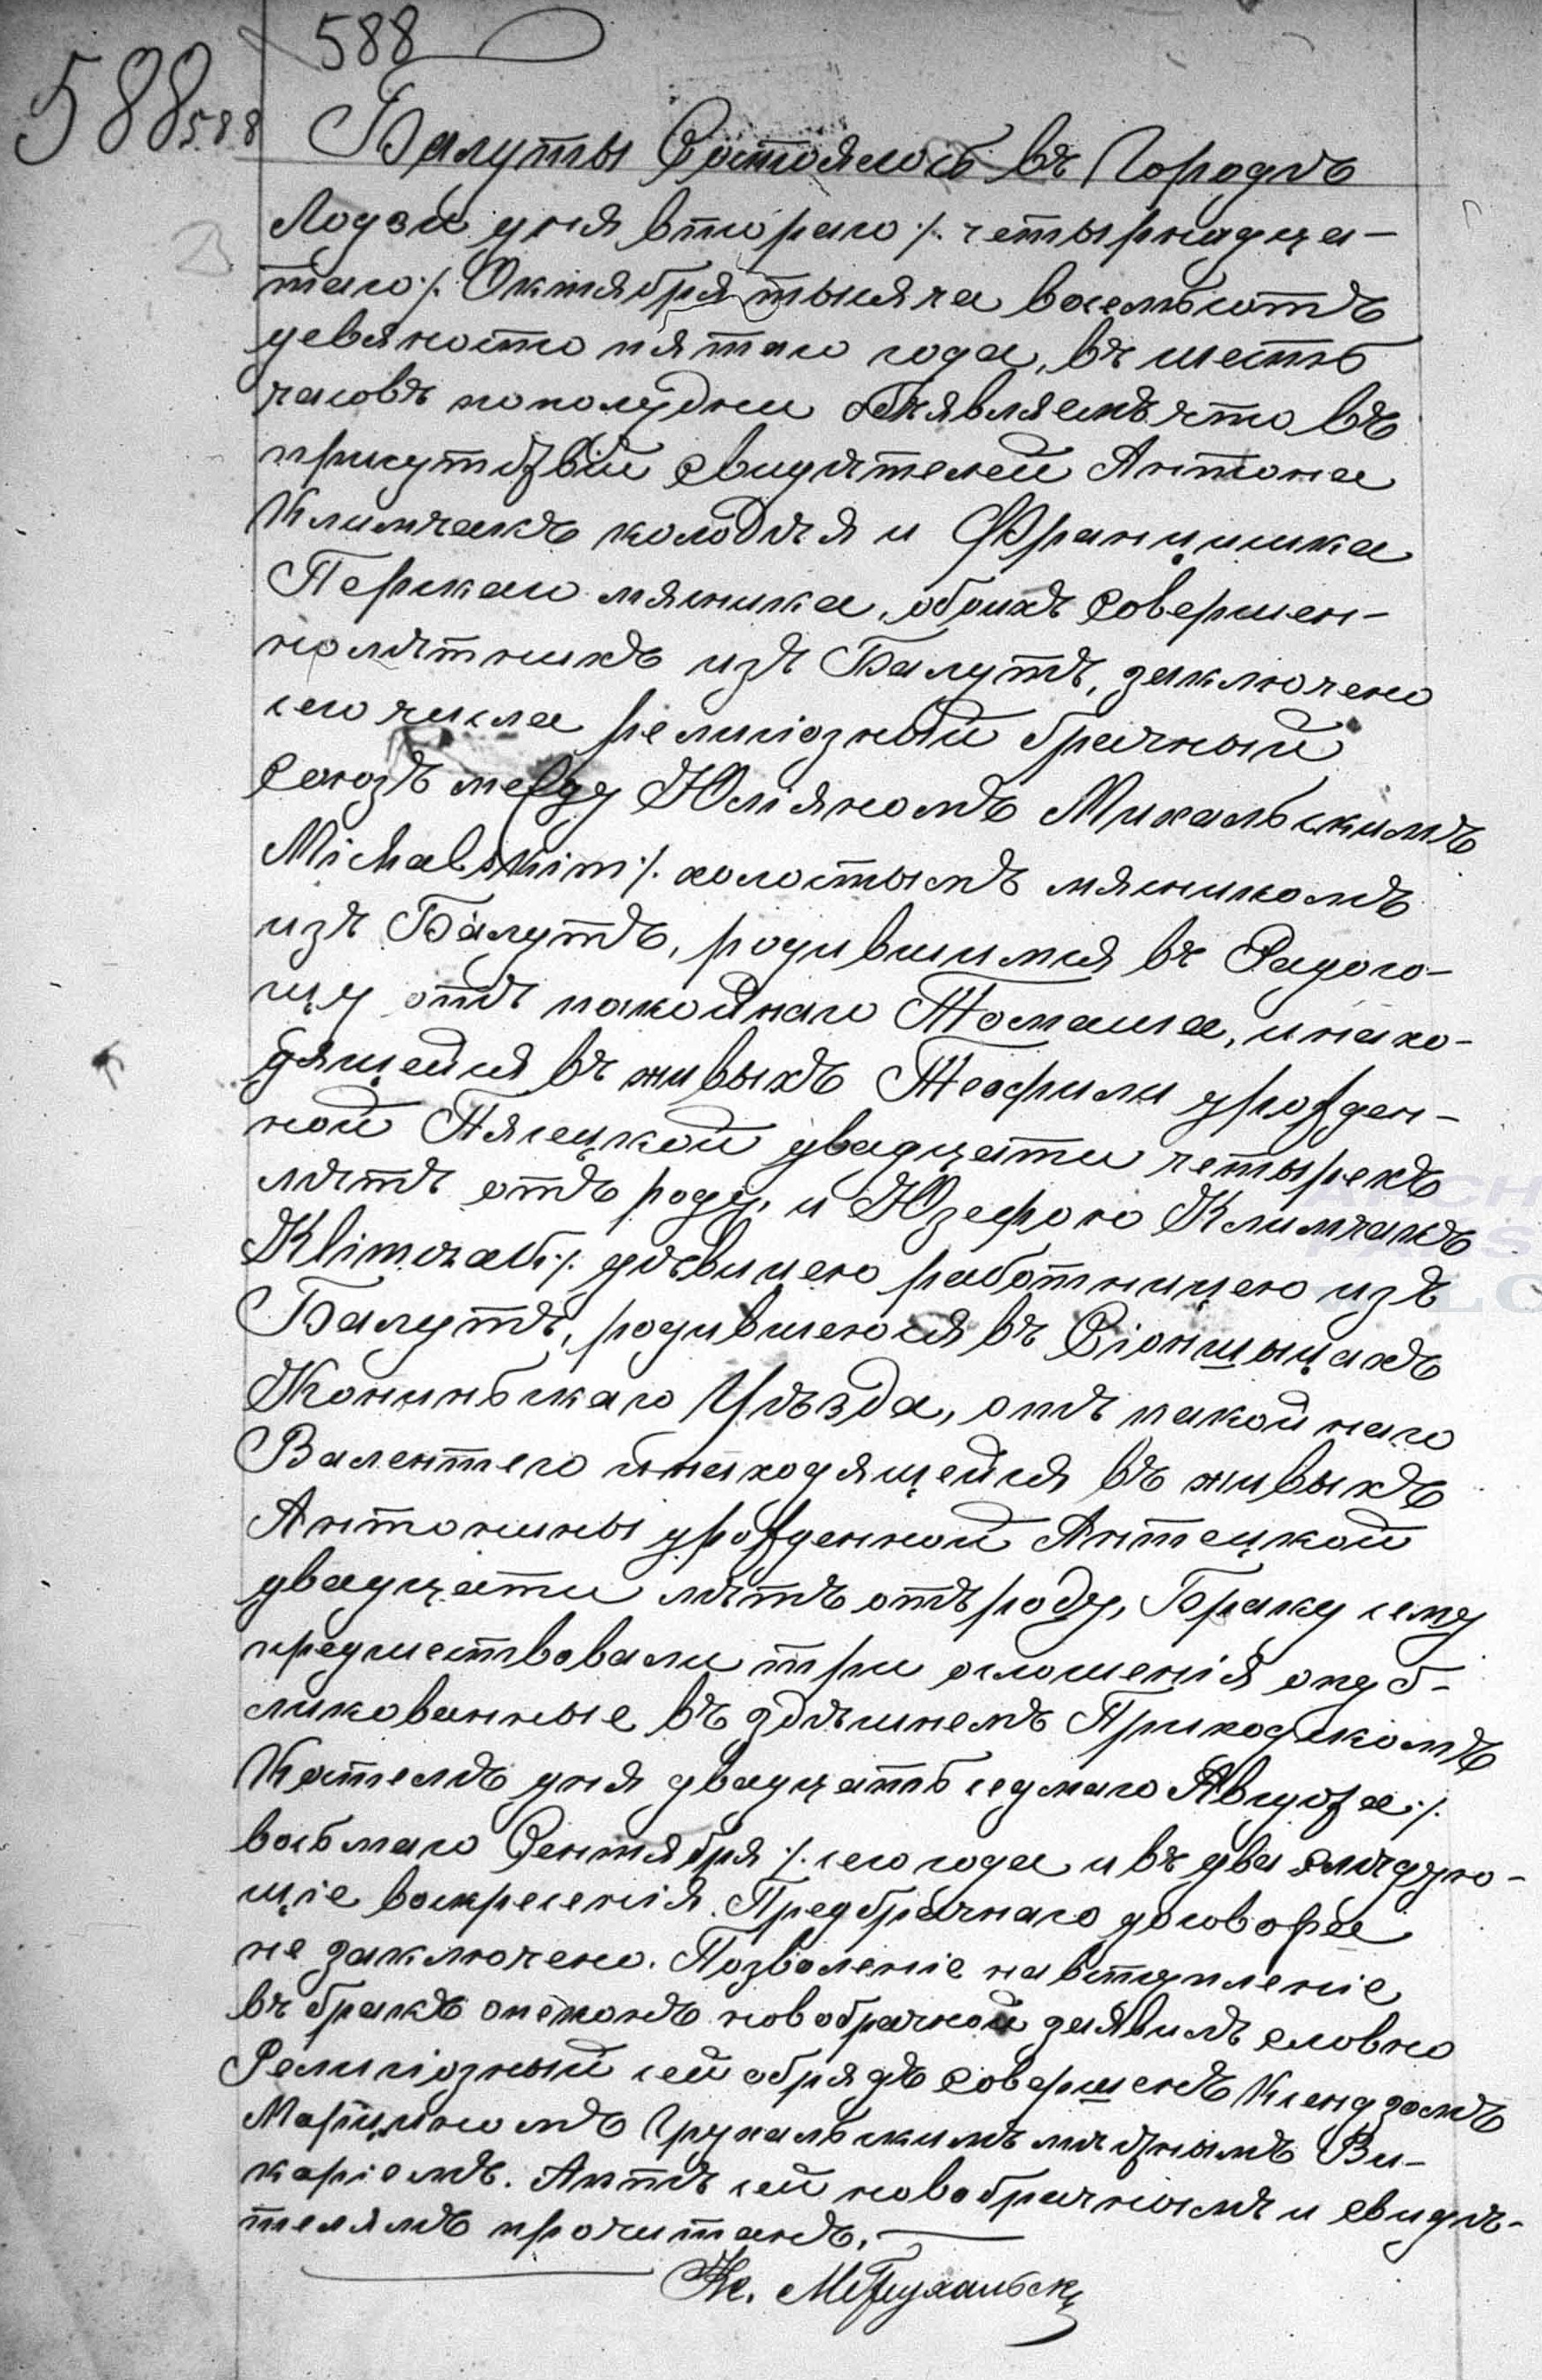 588
588 588
Балуты Состоялось въ Городѣ
Лодзи дня втораго /. четырнадца-
таго /. Октября тысяча восемьсотъ
девяносто пятаго года, въ шесть
часовъ пополудни Объявляемъ что въ
присутствіи свидѣтелей Антона
Климчакъ колодѣя и Францишка
мясника, обоихъ совершен-
нолѣтнихъ изъ Балутъ, заключено
сего числа религіозный брачный
союзъ между Юліяномъ Михальскимъ
Michalskim /. холостымъ мясникомъ
изъ Балутъ, родившимся въ Радого-
щу отъ покойнаго Томаша, и нахо-
дящейся въ живыхъ Теофили урожден-
ной двадцати четырехъ
лѣтъ отъ роду, и Юзефою Климчакъ
Klimczak /. дѣвицею работницею изъ
Балутъ, родившеюся въ
Конинскаго Уѣзда, отъ покойнаго
Валентего и находящейся въ живыхъ
Антонины урожденной Антецкой
двадцати лѣтъ отъ роду, Браку сему
предшествовали три оглошенія опуб-
ликованные въ здѣшнемъ Приходскомъ
Костелѣ дня двадцать седмаго Августа /.
восьмаго Сентября /. сего года и въ два слѣдую-
щіе воскресенія. Предбрачнаго договора
не заключено. Позволеніе на вступленіе
въ бракъ опекунъ новобрачной заявилъ словно
Религіозный сей обрядъ совершенъ Ксендзомъ
Марциномъ Грухальскимъ мѣстнымъ Ви-
каріемъ. Актъ сей новобрачнымъ и свидѣ-
телямъ прочитанъ.
Кс. М Грухальскі